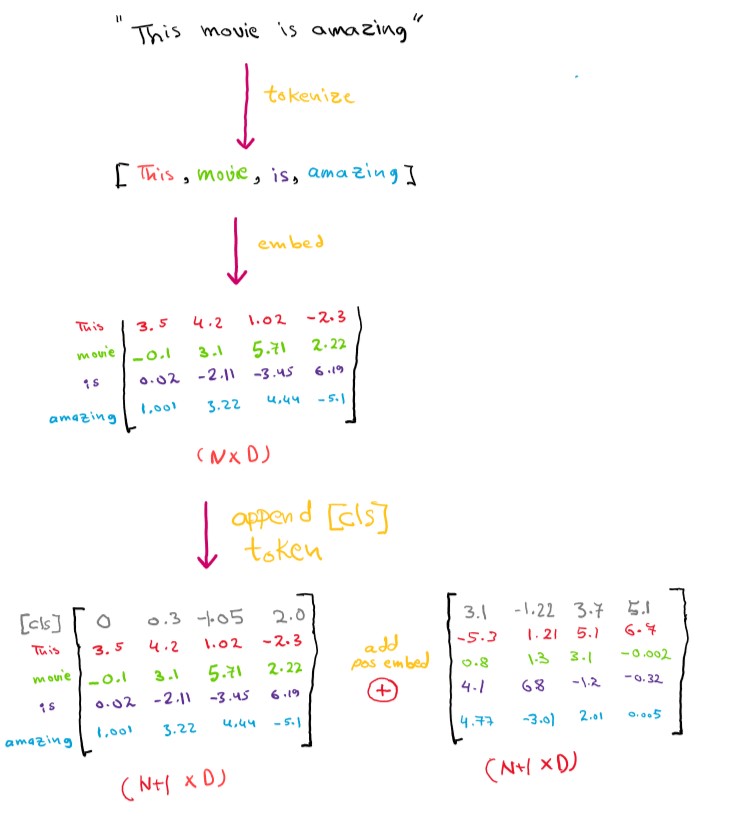 "This movie is amazing"
tokenize
[ This , movie , is , amazing ]
embed
This 3.5 4.2 1.02 -2.3
movie -0.1 3.1 5.71 2.22
is 0.02 -2.11 -3.45 6.19
amazing 1.001 3.22 4.44 -5.1
(N x D)
append [cls]
token
[cls] 0 0.3 -1.05 2.0
This 3.5 4.2 1.02 -2.3
movie -0.1 3.1 5.71 2.22
is 0.02 -2.11 -3.45 6.19
amazing 1.001 3.22 4.44 -5.1
(N+1 x D)
add
pos embed
+
3.1 -1.22 3.7 5.1
-5.3 1.21 5.1 6.7
0.8 1.3 3.1 -0.002
4.1 68 -1.2 -0.32
4.77 -3.01 2.01 0.005
(N+1 x D)